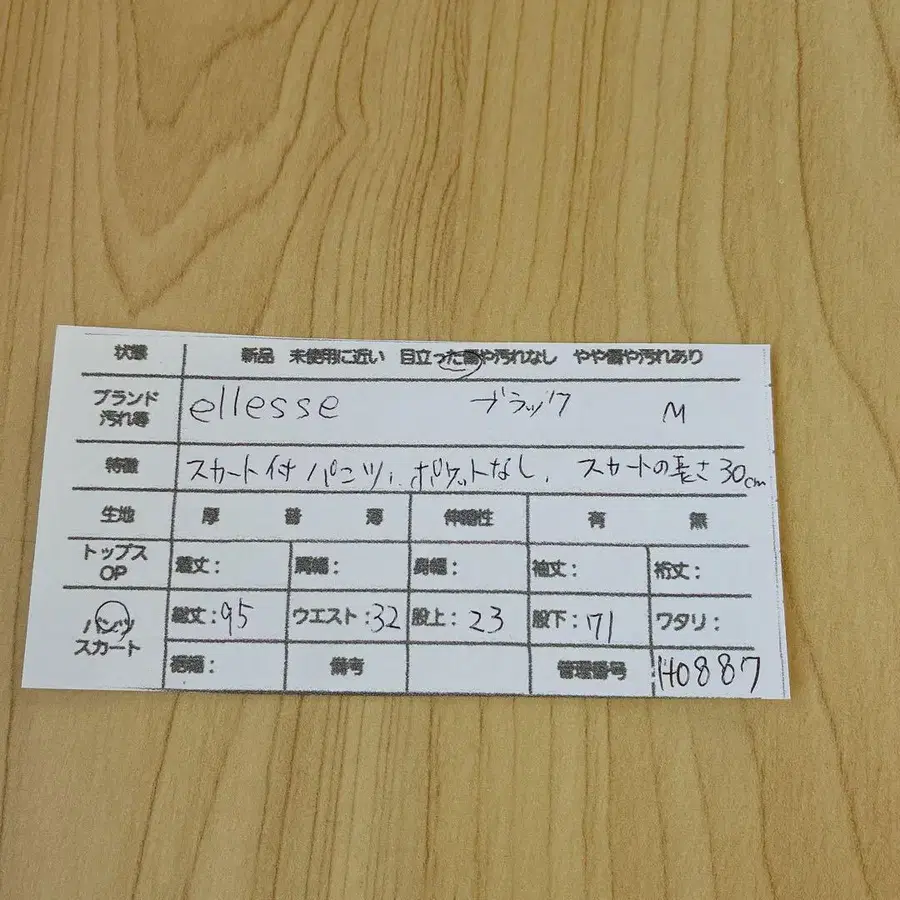 状態 新品 未使用に近い 目立った傷や汚れなし やや傷や汚れあり
ブランド 汚れ等 ellesse ブラック M
特徴 スカート付パンツ、ポケットなし、スカートの長さ30cm
生地 厚 普 薄 伸縮性 有 無
トップス OP 着丈： 肩幅： 身幅： 袖丈： 裄丈：
パンツ スカート 総丈：95 ウエスト：32 股上：23 股下：71 ワタリ：
裾幅： 備考 管理番号 H0887